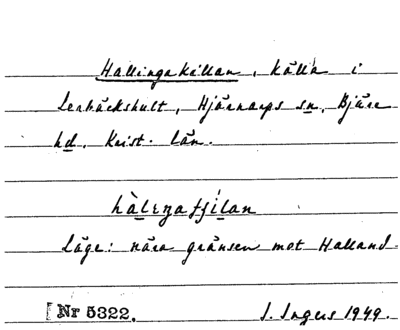 Hallingakällan, källa i
Lerbäckshult, Hjärnarps sn, Bjäre
hd, Krist. län.
Läge: nära gränsen mot Halland
[Nr 5322. I. Ingers 1949.